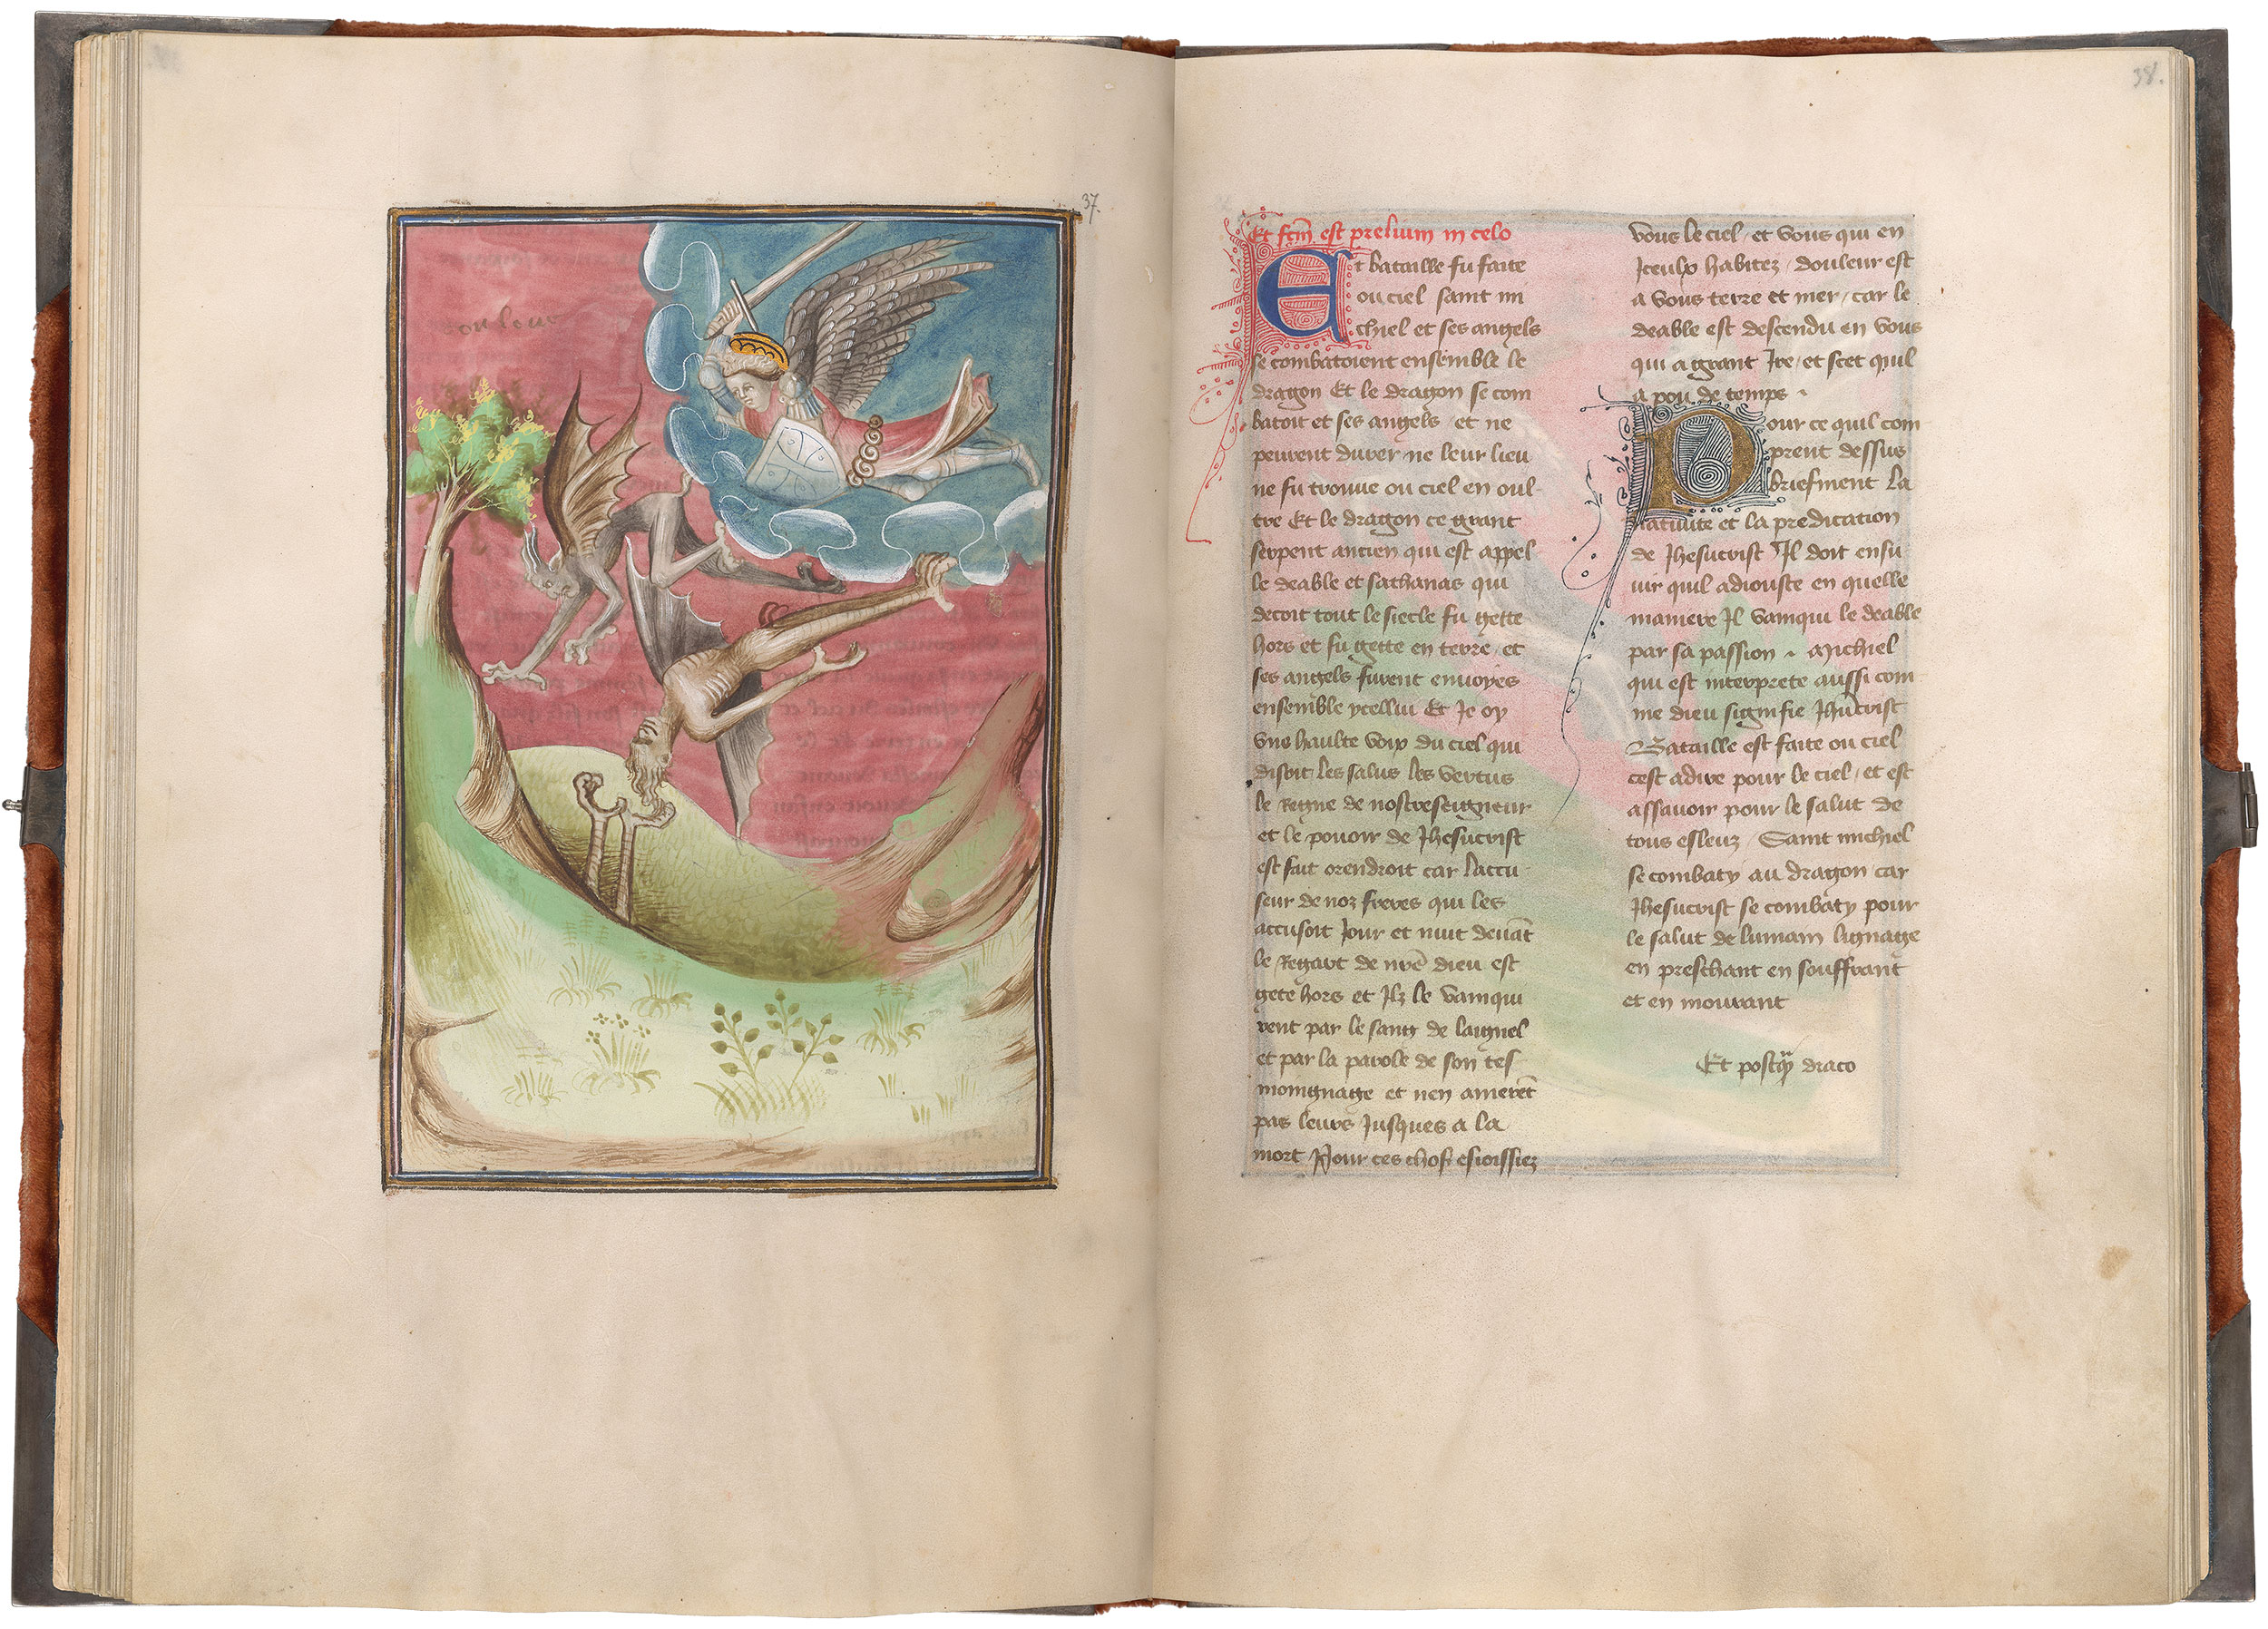 37.
38.
Et fcm̄ est prelium in celo
Et bataille fu faite
ou ciel saint mi
chiel et ses angels
se combatoient ensemble le
dragon Et le dragon se com
batoit et ses angels et ne
peurent durer ne leur lieu
ne fu trouue ou ciel en oul
tre Et le dragon ce grant
serpent ancien qui est appel
le deable et sathanas qui
decoit tout le siecle fu gette
hors et fu gette en terre et
ses angels furent enuoyes
ensemble ycellui Et Je oy
vne haulte voix du ciel qui
disoit les salus les vertus
le Regne de nostreseigneur
et le pouoir de Jhesucrist
est fait orendroit car laccu
seur de noz freres qui les
accusoit Jour et nuit deuāt
le Regart de nrē dieu est
gete hors et Ilz le vainqui
rent par le sang de laignel
et par la parole de son tes
moingnage et nen amerēt
pas leurs Jusques a la
mort Pour ces chos esioissiez
vous le ciel et vous qui en
Iceulx habitez / douleur est
a vous terre et mer / car le
deable est descendu en vous
qui a grant Ire / et scet quil
a pou de temps .
Pour ce quil com
prent dessus
briefment la
natiuite et la predication
de Jhesucrist Il doit ensu
uir quil adiouste en quelle
maniere Il vainqui le deable
par sa passion . Michiel
qui est interprete aussi com
me dieu signifie Jhūcrist
Bataille est faite ou ciel
cest adire pour le ciel / et est
assauoir pour le salut de
tous esleuz / Saint michiel
se combaty au dragon car
Jhesucrist se combaty pour
le salut de lumain lignage
en preschant en souffrant
et en mourant
Et postq̄ draco